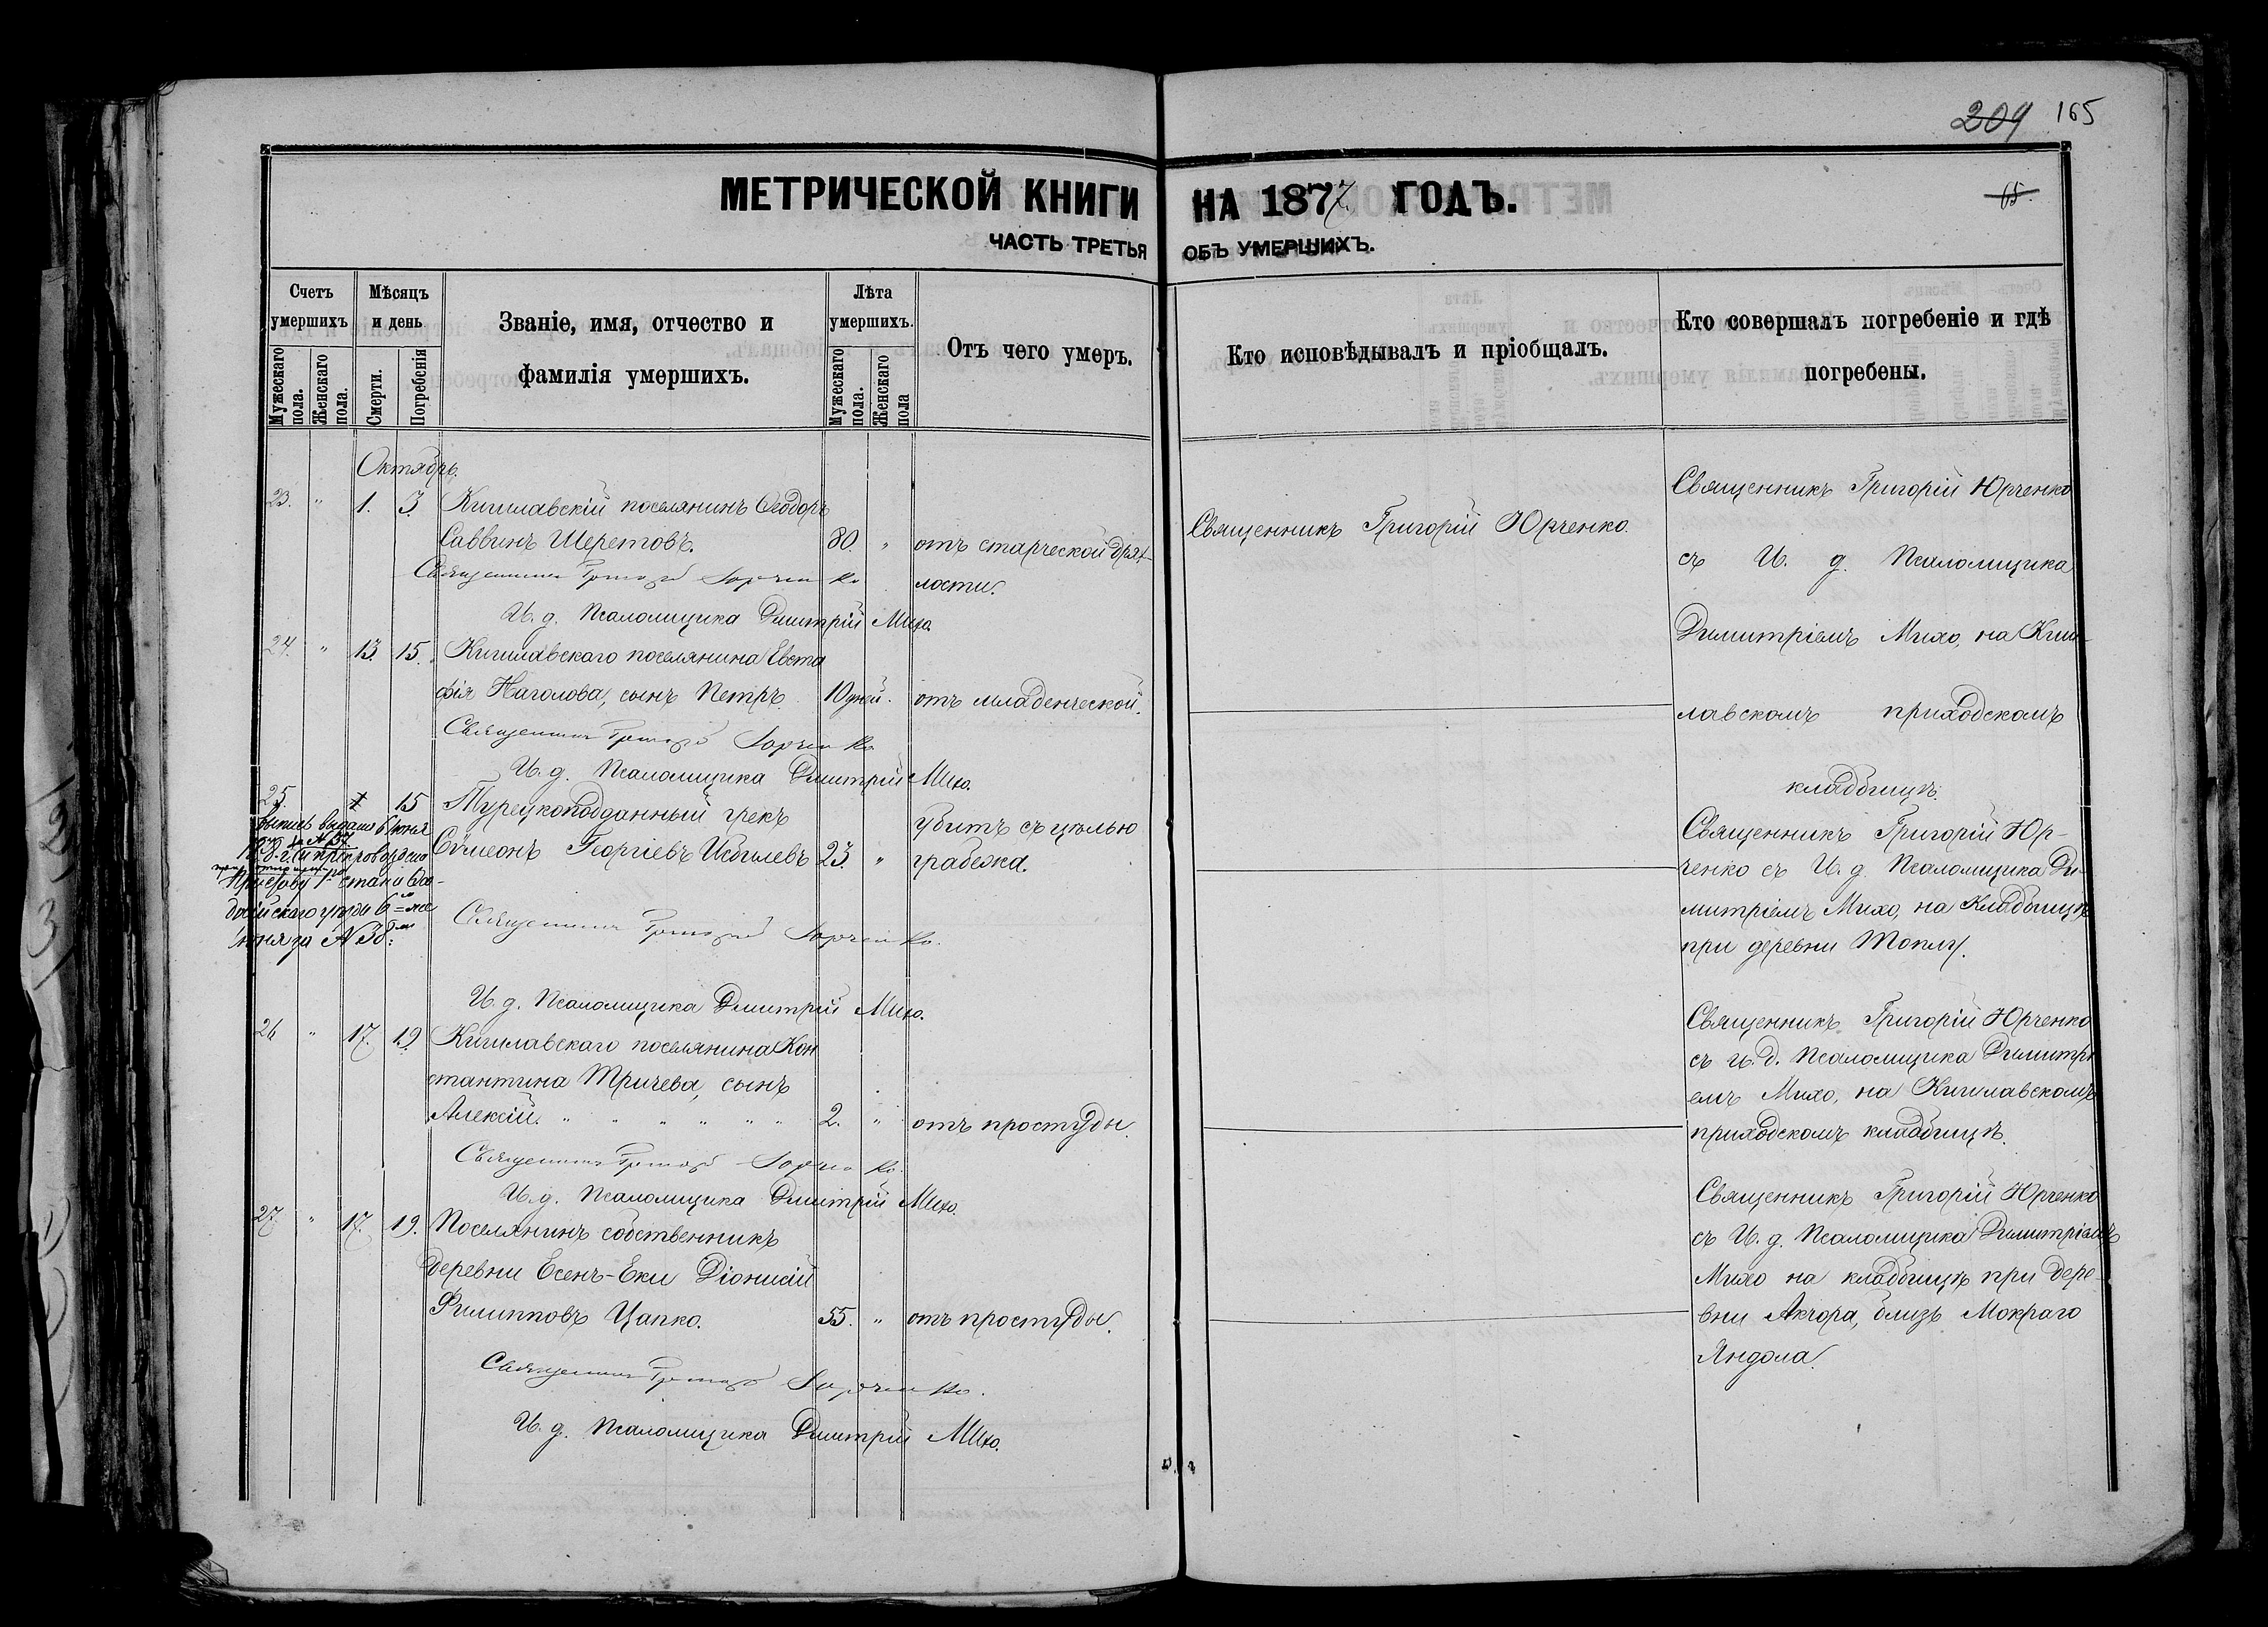 209 165
65.
МЕТРИЧЕСКОЙ КНИГИ НА 1877 ГОДЪ.
ЧАСТЬ ТРЕТЬЯ ОБЪ УМЕРШИХЪ.
Счетъ умершихъ
Мужескаго пола.
Женскаго пола.
Мѣсяцъ и день
Смерти.
Погребенія
Званіе, имя, отчество и
фамилія умершихъ.
Лѣта умершихъ.
Мужескаго пола.
Женскаго пола
Отъ чего умеръ.
Кто исповѣдывалъ и пріобщалъ.
Кто совершалъ погребеніе и гдѣ
погребены.
Октябрь.
23. " 1. 3. Кишлавскій поселянинъ Ѳеодоръ
Саввинъ Шеретовъ. 80. " отъ старческой дрях-
лости.
Священникъ Григорій Юрченко
И. д. Псаломщика Димитрій Михо.
Священникъ Григорій Юрченко.
Священникъ Григорій Юрченко
съ И. д. Псаломщика
Димитріемъ Михо, на Киш-
лавскомъ приходскомъ
кладбищѣ.
24. " 13. 15. Кишлавскаго поселянина Евста
фія Наголова, сынъ Петръ 10 дней. отъ младенческой.
Священникъ Григорій Юрченко
И. д. Псаломщика Димитрій Михо.
25. 15 Турецкоподданный грекъ
Сѵмеонъ Георгіевъ 23. " убитъ съ цѣлью
грабежа.
выписъ выдана 6 Іюня
Приставу 1 стана Ѳео-
досійскаго уѣзда 6
Іюня за № 38
Священникъ Григорій Юрченко.
И. д. Псаломщика Димитрій Михо.
Священникъ Григорій Юр-
ченко съ И. д. Псаломщика Ди-
митріемъ Михо, на Кладбищѣ
при деревни Топлу.
26 " 17. 19. Кишлавскаго поселянина Кон
стантина Тричева, сынъ
Алексій. " " " " " " 2. " отъ простуды.
Священникъ Григорій Юрченко.
И. д. Псаломщика Димитрій Михо.
Священникъ Григорій Юрченко
съ и. д. Псаломщика Димитрі
емъ Михо, на Кишлавскомъ
приходскомъ кладбищѣ.
27 " 17. 19. Поселянинъ собственникъ
деревни Есенъ-Еки Діонисій
Филипповъ Цапко. 55. " отъ простуды.
Священникъ Григорій Юрченко.
И. д. Псаломщика Димитрій Михо.
Священникъ Григорій Юрченко
съ И. д. Псаломщика Димитріемъ
Михо на кладбищѣ при дере-
вни Акчора, близъ Мокраго
Яндола.